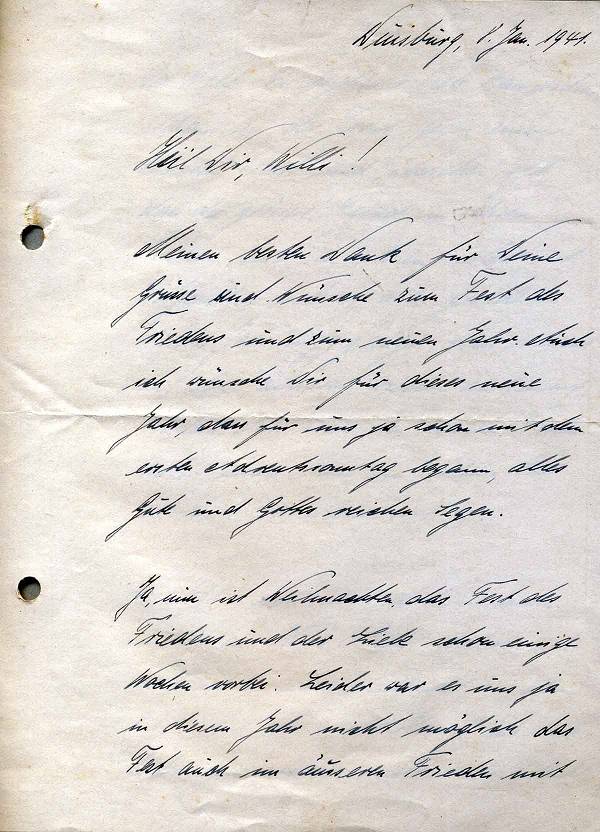 Duisburg, 8. Jan. 1941.
Heil Dir, Willi!
Meinen besten Dank für Deine
Grüsse und Wünsche zum Fest des
Friedens und zum neuen Jahr. Auch
ich wünsche Dir für dieses neue
Jahr, das für uns ja schon mit dem
ersten Adventssonntag begann, alles
Gute und Gottes reichen Segen.
Ja, nun ist Weihnachten, das Fest des
Friedens und der Liebe schon einige
Wochen vorbei. Leider war es uns ja
in diesem Jahr nicht möglich das
Fest auch im äusseren Frieden mit